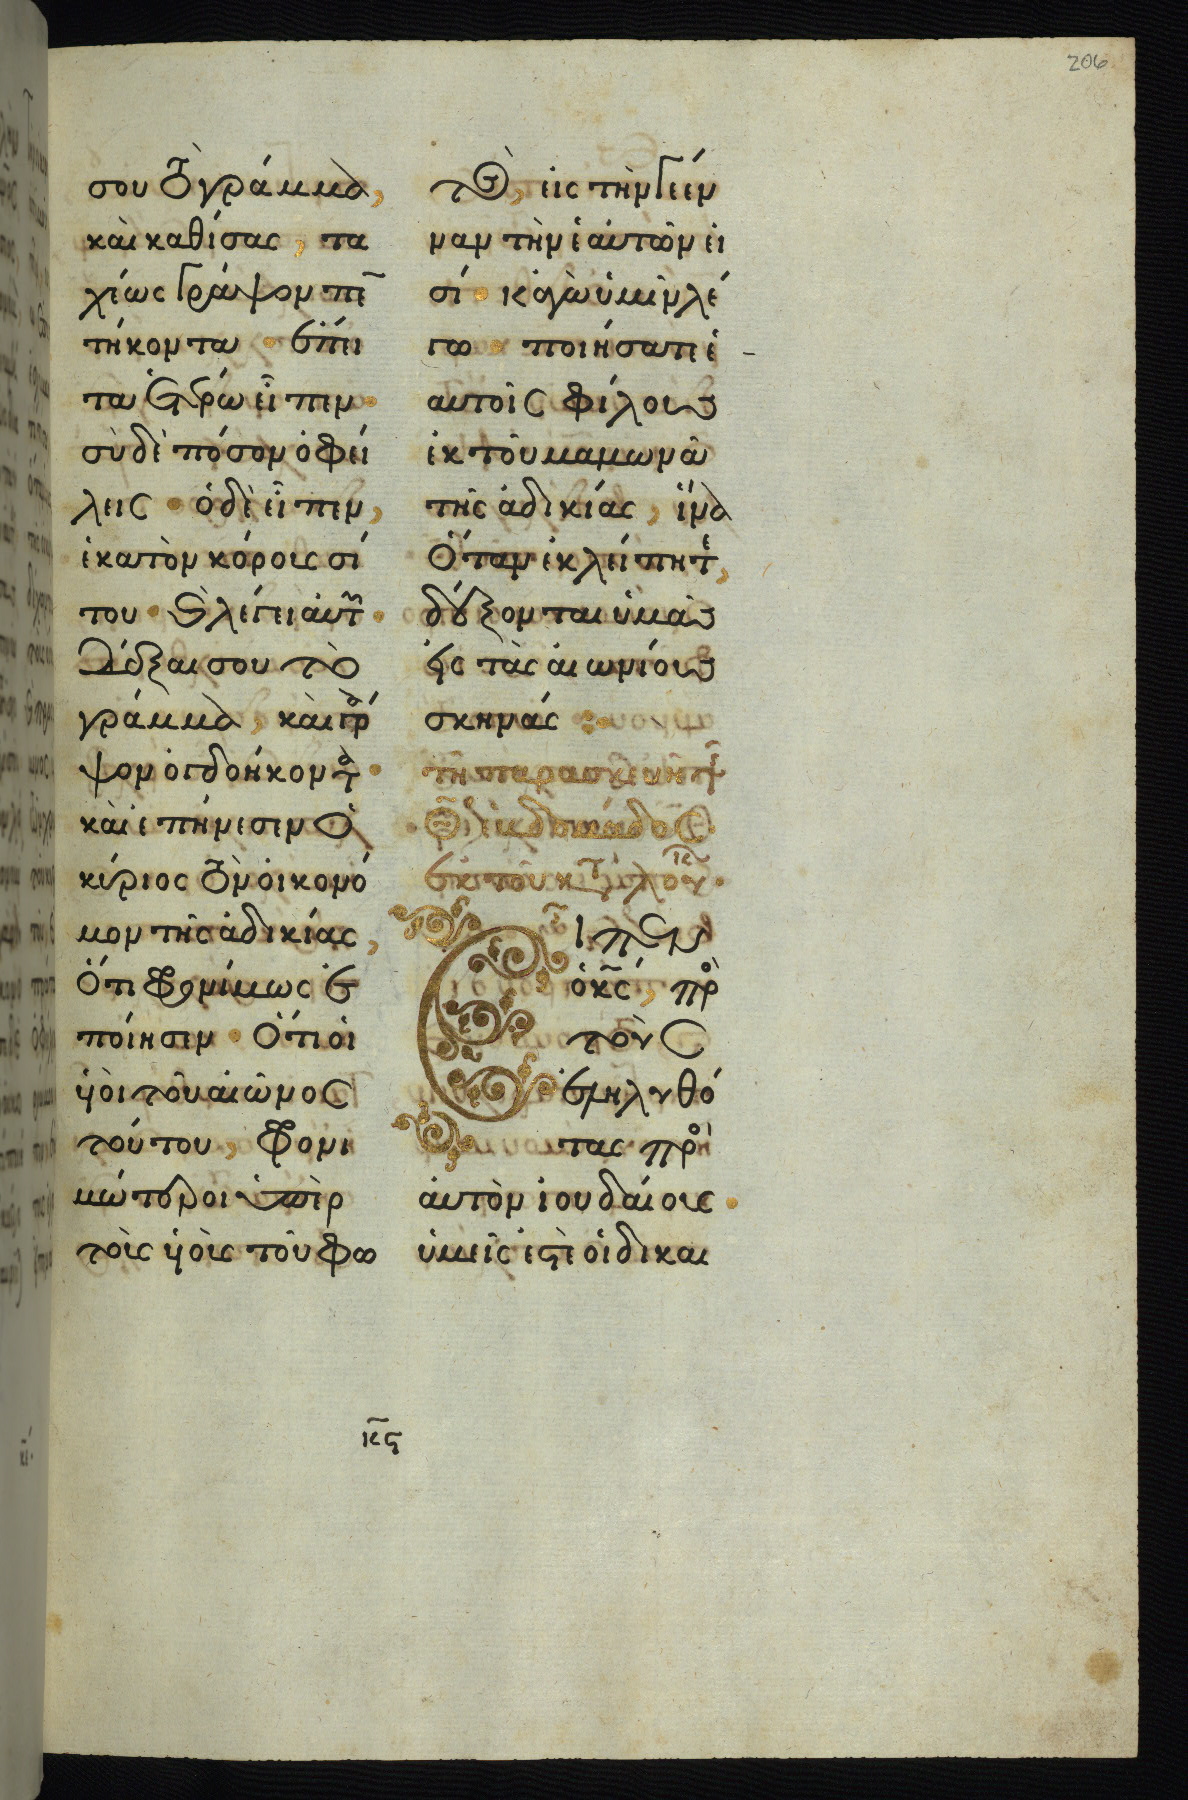 206
σου τὸ γράμμα,
καὶ καθίσας, τα
χέως γράψον πε̄
τήκοντα · ἔπει
τα ἑτέρω εἶπεν ·
σὺ δὲ πόσον ὀφεί
λεις · ὁ δὲ εἶπεν,
ἑκατὸν κόρους σί
του · Καὶ λέγει αὐτῶ ·
Δέξαι σου τὸ
γράμμα, καὶ γρά
ψον ὀγδοήκοντα ·
καὶ ἐπήνεσεν ὁ
κύριος τὸν οἰκονό
μον τῆς ἀδικίας,
Ὅτι φρονίμως ἐ
ποίησεν · Ὅτι οἱ
υἱοὶ τοῦ αἰῶνος
τούτου, φρονι
μώτεροι ὑπὲρ
τοὺς υἱοὺς τοῦ φω
τὸς, εἰς τὴν γενε
ὰν τὴν ἑαυτῶν εἰ
σί · κἀγὼ ὑμῖν λέ
γω · ποιήσατε ἑ
αυτοῖς φίλους
ἐκ τοῦ μαμωνᾶ
τῆς ἀδικίας, ἵνα
Ὅταν ἐκλείπητε,
δέξονται ὑμᾶς
εἰς τὰς αἰωνίους
σκηνάς :·
τῆ παρασκευῆ τῆς
Θ̄ ἑβδομάδος ·
Ἐκ τοῦ κατὰ λουκ ·
Εἶπεν
ὁ κ̄ς, πρὸ
τοὺς
ἐληλυθό
τας πρὸ
αὐτὸν ἰουδαίους ·
ὑμεῖς ἐστὲ οἱ δικαι
κ̄ς